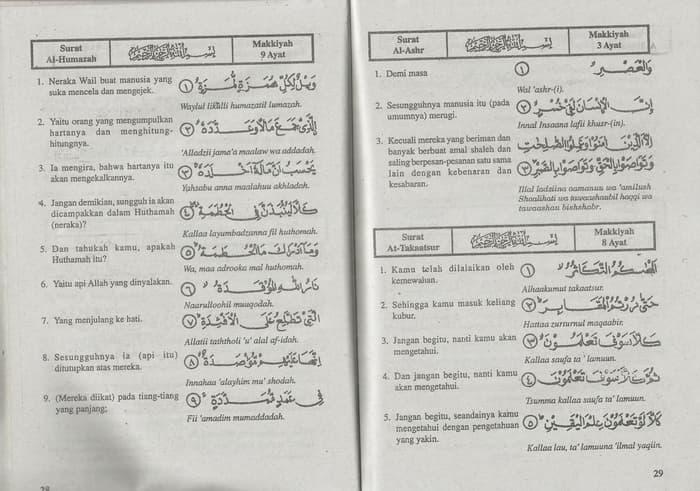 Surat
Al-Humazah
بِسْمِ اللهِ الرَّحْمٰنِ الرَّحِيْمِ
Makkiyah
9 Ayat
1. Neraka Wail buat manusia yang
suka mencela dan mengejek.
وَيْلٌ لِكُلِّ هُمَزَةٍ لُمَزَةٍ ١
Waylul likulli humazatil lumazah.
2. Yaitu orang yang mengumpulkan
hartanya dan menghitung-
hitungnya.
الَّذِيْ جَمَعَ مَالًا وَعَدَّدَهُ ٢
'Alladzii jama'a maalaw wa addadah.
3. Ia mengira, bahwa hartanya itu
akan mengekalkannya.
يَحْسَبُ اَنَّ مَالَهُ اَخْلَدَهُ ٣
Yahsabu anna maalahuu akhladah.
4. Jangan demikian, sungguh ia akan
dicampakkan dalam Huthamah
(neraka)?
كَلَّا لَيُنْبَذَنَّ فِى الْحُطَمَةِ ٤
Kallaa layumbadzanna fil huthomah.
5. Dan tahukah kamu, apakah
Huthamah itu?
وَمَا اَدْرٰىكَ مَا الْحُطَمَةُ ٥
Wa, maa adrooka mal huthomah.
6. Yaitu api Allah yang dinyalakan.
نَارُ اللهِ الْمُوْقَدَةُ ٦
Naarulloohil muuqodah.
7. Yang menjulang ke hati.
الَّتِيْ تَطَّلِعُ عَلَى الْاَفْئِدَةِ ٧
Allatii taththoli 'u' alal af-idah.
8. Sesungguhnya ia (api itu)
ditutupkan atas mereka.
اِنَّهَا عَلَيْهِمْ مُؤْصَدَةٌ ٨
Innahaa 'alayhim mu' shodah.
9. (Mereka diikat) pada tiang-tiang
yang panjang;
فِيْ عَمَدٍ مُمَدَّدَةٍ ٩
Fii 'amadim mumaddadah.
28
Surat
Al-Ashr
بِسْمِ اللهِ الرَّحْمٰنِ الرَّحِيْمِ
Makkiyah
3 Ayat
1. Demi masa
وَالْعَصْرِ ١
Wal 'ashr-(i).
2. Sesungguhnya manusia itu (pada
umumnya) merugi.
اِنَّ الْاِنْسَانَ لَفِيْ خُسْرٍ ٢
Innal Insaana lafii khusr-(in).
3. Kecuali mereka yang beriman dan
banyak berbuat amal shaleh dan
saling berpesan-pesanan satu sama
lain dengan kebenaran dan
kesabaran.
اِلَّا الَّذِيْنَ اٰمَنُوْا وَعَمِلُوا الصّٰلِحٰتِ
وَتَوَاصَوْا بِالْحَقِّ وَتَوَاصَوْا بِالصَّبْرِ ٣
Illal ladziina aamanuu wa 'amilush
Shaalihati wa tawaashaubil haqqi wa
tawaashau bishshabr.
Surat
At-Takaatsur
بِسْمِ اللهِ الرَّحْمٰنِ الرَّحِيْمِ
Makkiyah
8 Ayat
1. Kamu telah dilalaikan oleh
kemewahan.
اَلْهٰىكُمُ التَّكَاثُرُ ١
Alhaakumut takaatsur.
2. Sehingga kamu masuk keliang
kubur.
حَتّٰى زُرْتُمُ الْمَقَابِرَ ٢
Hattaa zurtumul maqaabir.
3. Jangan begitu, nanti kamu akan
mengetahui.
كَلَّا سَوْفَ تَعْلَمُوْنَ ٣
Kallaa saufa ta' lamuun.
4. Dan jangan begitu, nanti kamu
akan mengetahui.
ثُمَّ كَلَّا سَوْفَ تَعْلَمُوْنَ ٤
Tsumma kallaa saufa ta' lamuun.
5. Jangan begitu, seandainya kamu
mengetahui dengan pengetahuan
yang yakin.
كَلَّا لَوْ تَعْلَمُوْنَ عِلْمَ الْيَقِيْنِ ٥
Kallaa lau, ta' lamuuna 'ilmal yaqiin.
29